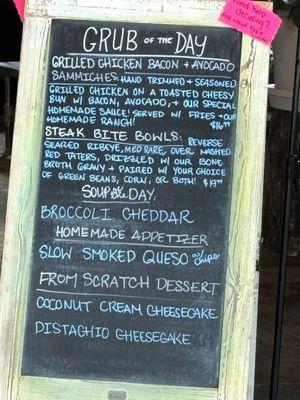 Need help
deciding?
GRUB OF THE DAY
GRILLED CHICKEN BACON + AVOCADO
SAMMICHES: HAND TRIMMED + SEASONED
GRILLED CHICKEN ON A TOASTED CHEESY
BUN W/ BACON, AVOCADO, + OUR SPECIAL
HOMEMADE SAUCE! SERVED W/ FRIES + OUR
HOMEMADE RANCH! $16.99
STEAK BITE BOWLS: REVERSE
SEARED RIBEYE, MED RARE, OVER MASHED
RED TATERS, DRIZZLED W/ OUR BONE
BROTH GRAVY + PAIRED W/ YOUR CHOICE
OF GREEN BEANS, CORN, OR BOTH! $19.99
SOUP OF THE DAY:
BROCCOLI CHEDDAR
HOMEMADE APPETIZER
SLOW SMOKED QUESO w/ chips
FROM SCRATCH DESSERT
COCONUT CREAM CHEESECAKE
PISTACHIO CHEESECAKE